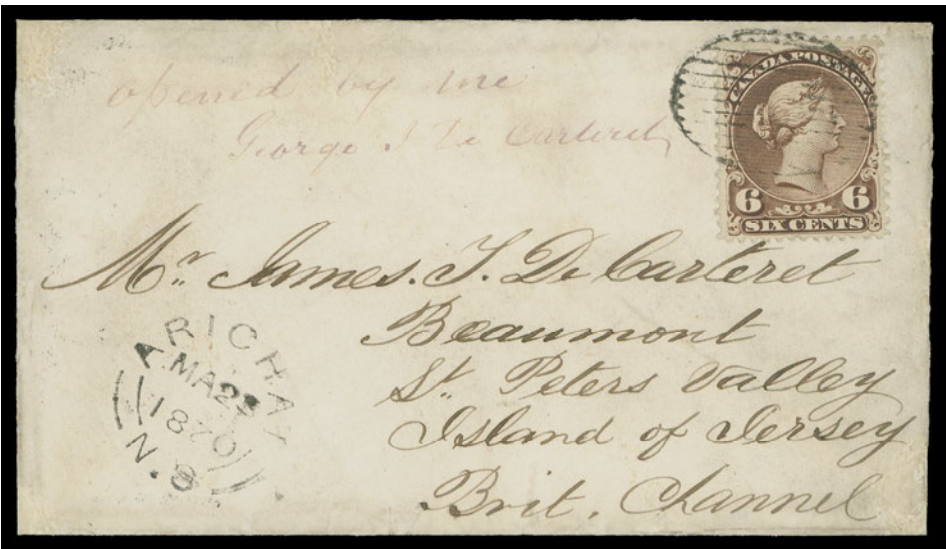 opened by me
George J De Carteret
CANADA POSTAGE
6 6
SIX CENTS
Mr. James. J. De Carteret
Beaumont
St. Peters Valley
Island of Jersey
Brit. Channel
ARICHAT
A.MA25
1870
N.S